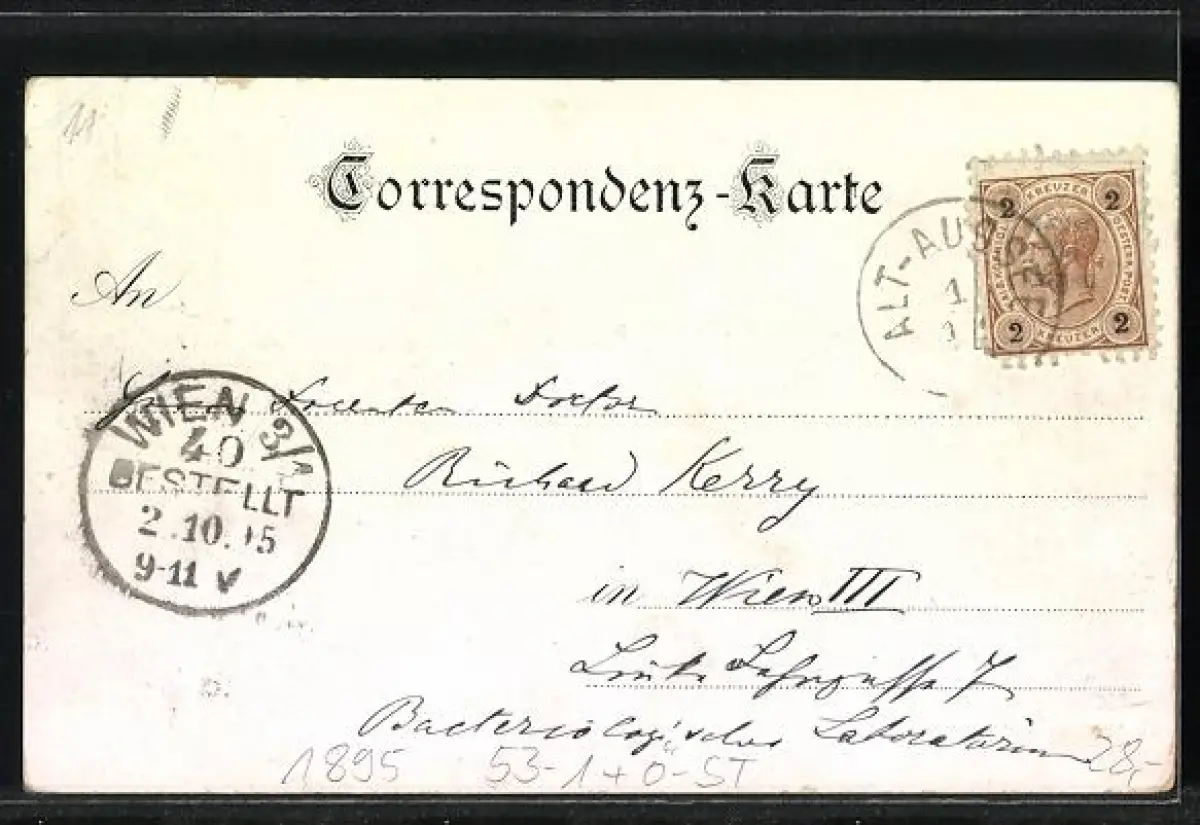 Correspondenz-Karte
KREUZER
2 2
2 2
KREUZER
ALT-AUS
1
An
Docenten Doctor
WIEN 3/1
40
BESTELLT
2.10. 95
9-11 V
Richard Kerry
in Wien III
Linke Bahngasse 7
Bacteriologisches Laboratorium
1895 53-1+0-ST 28,-